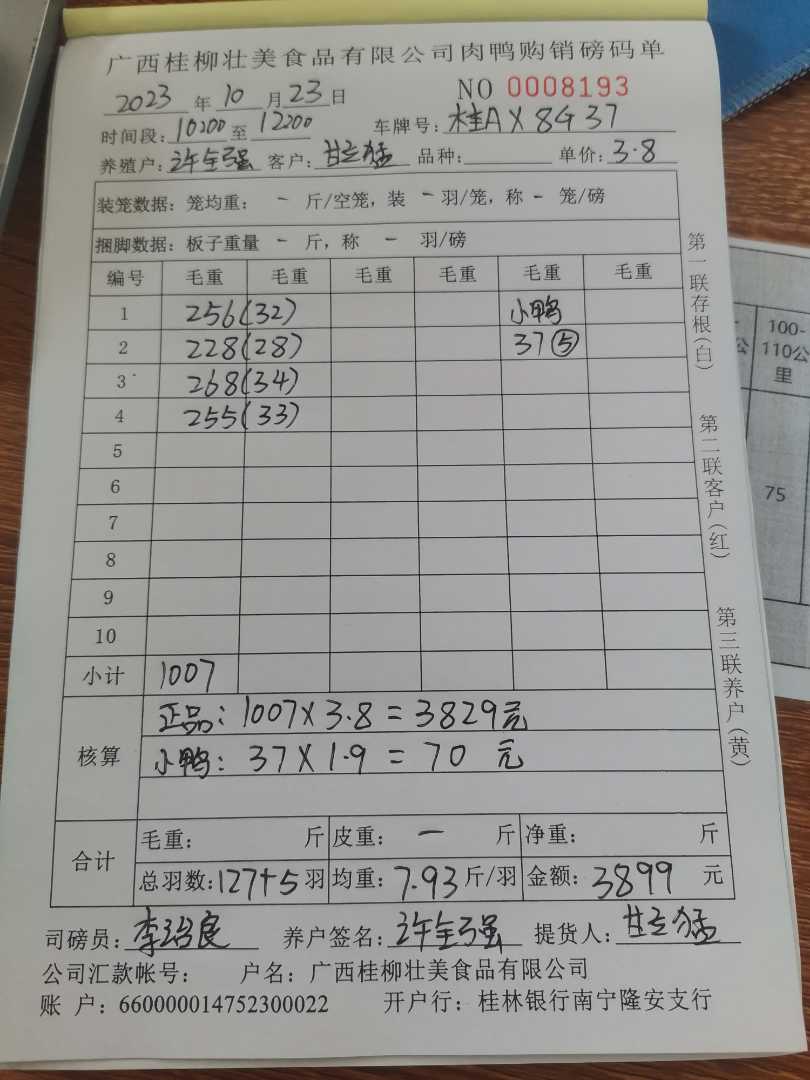 广西桂柳壮美食品有限公司肉鸭购销磅码单
NO 0008193
2023 年 10 月 23 日
时间段: 10200 至 12200 车牌号: 桂AX8G37
养殖户: 许全强 客户: 甘立猛 品种: 单价: 3.8
装笼数据: 笼均重: - 斤/空笼, 装 - 羽/笼, 称 - 笼/磅
捆脚数据: 板子重量 - 斤, 称 - 羽/磅
编号 毛重 毛重 毛重 毛重 毛重 毛重
1 256(32) 小鸭
2 228(28) 37⑤
3 268(34)
4 255(33)
5
6
7
8
9
10
小计 1007
核算
正品: 1007X3.8=3829元
小鸭: 37X1.9=70 元
合计
毛重: 斤 皮重: 一 斤 净重: 斤
总羽数: 127+5 羽 均重: 7.93 斤/羽 金额: 3899 元
司磅员: 李治良 养户签名: 许全强 提货人: 甘立猛
公司汇款帐号: 户名: 广西桂柳壮美食品有限公司
账 户: 660000014752300022 开户行: 桂林银行南宁隆安支行
第一联存根(白) 第二联客户(红) 第三联养户(黄)
100-
110公
里
75